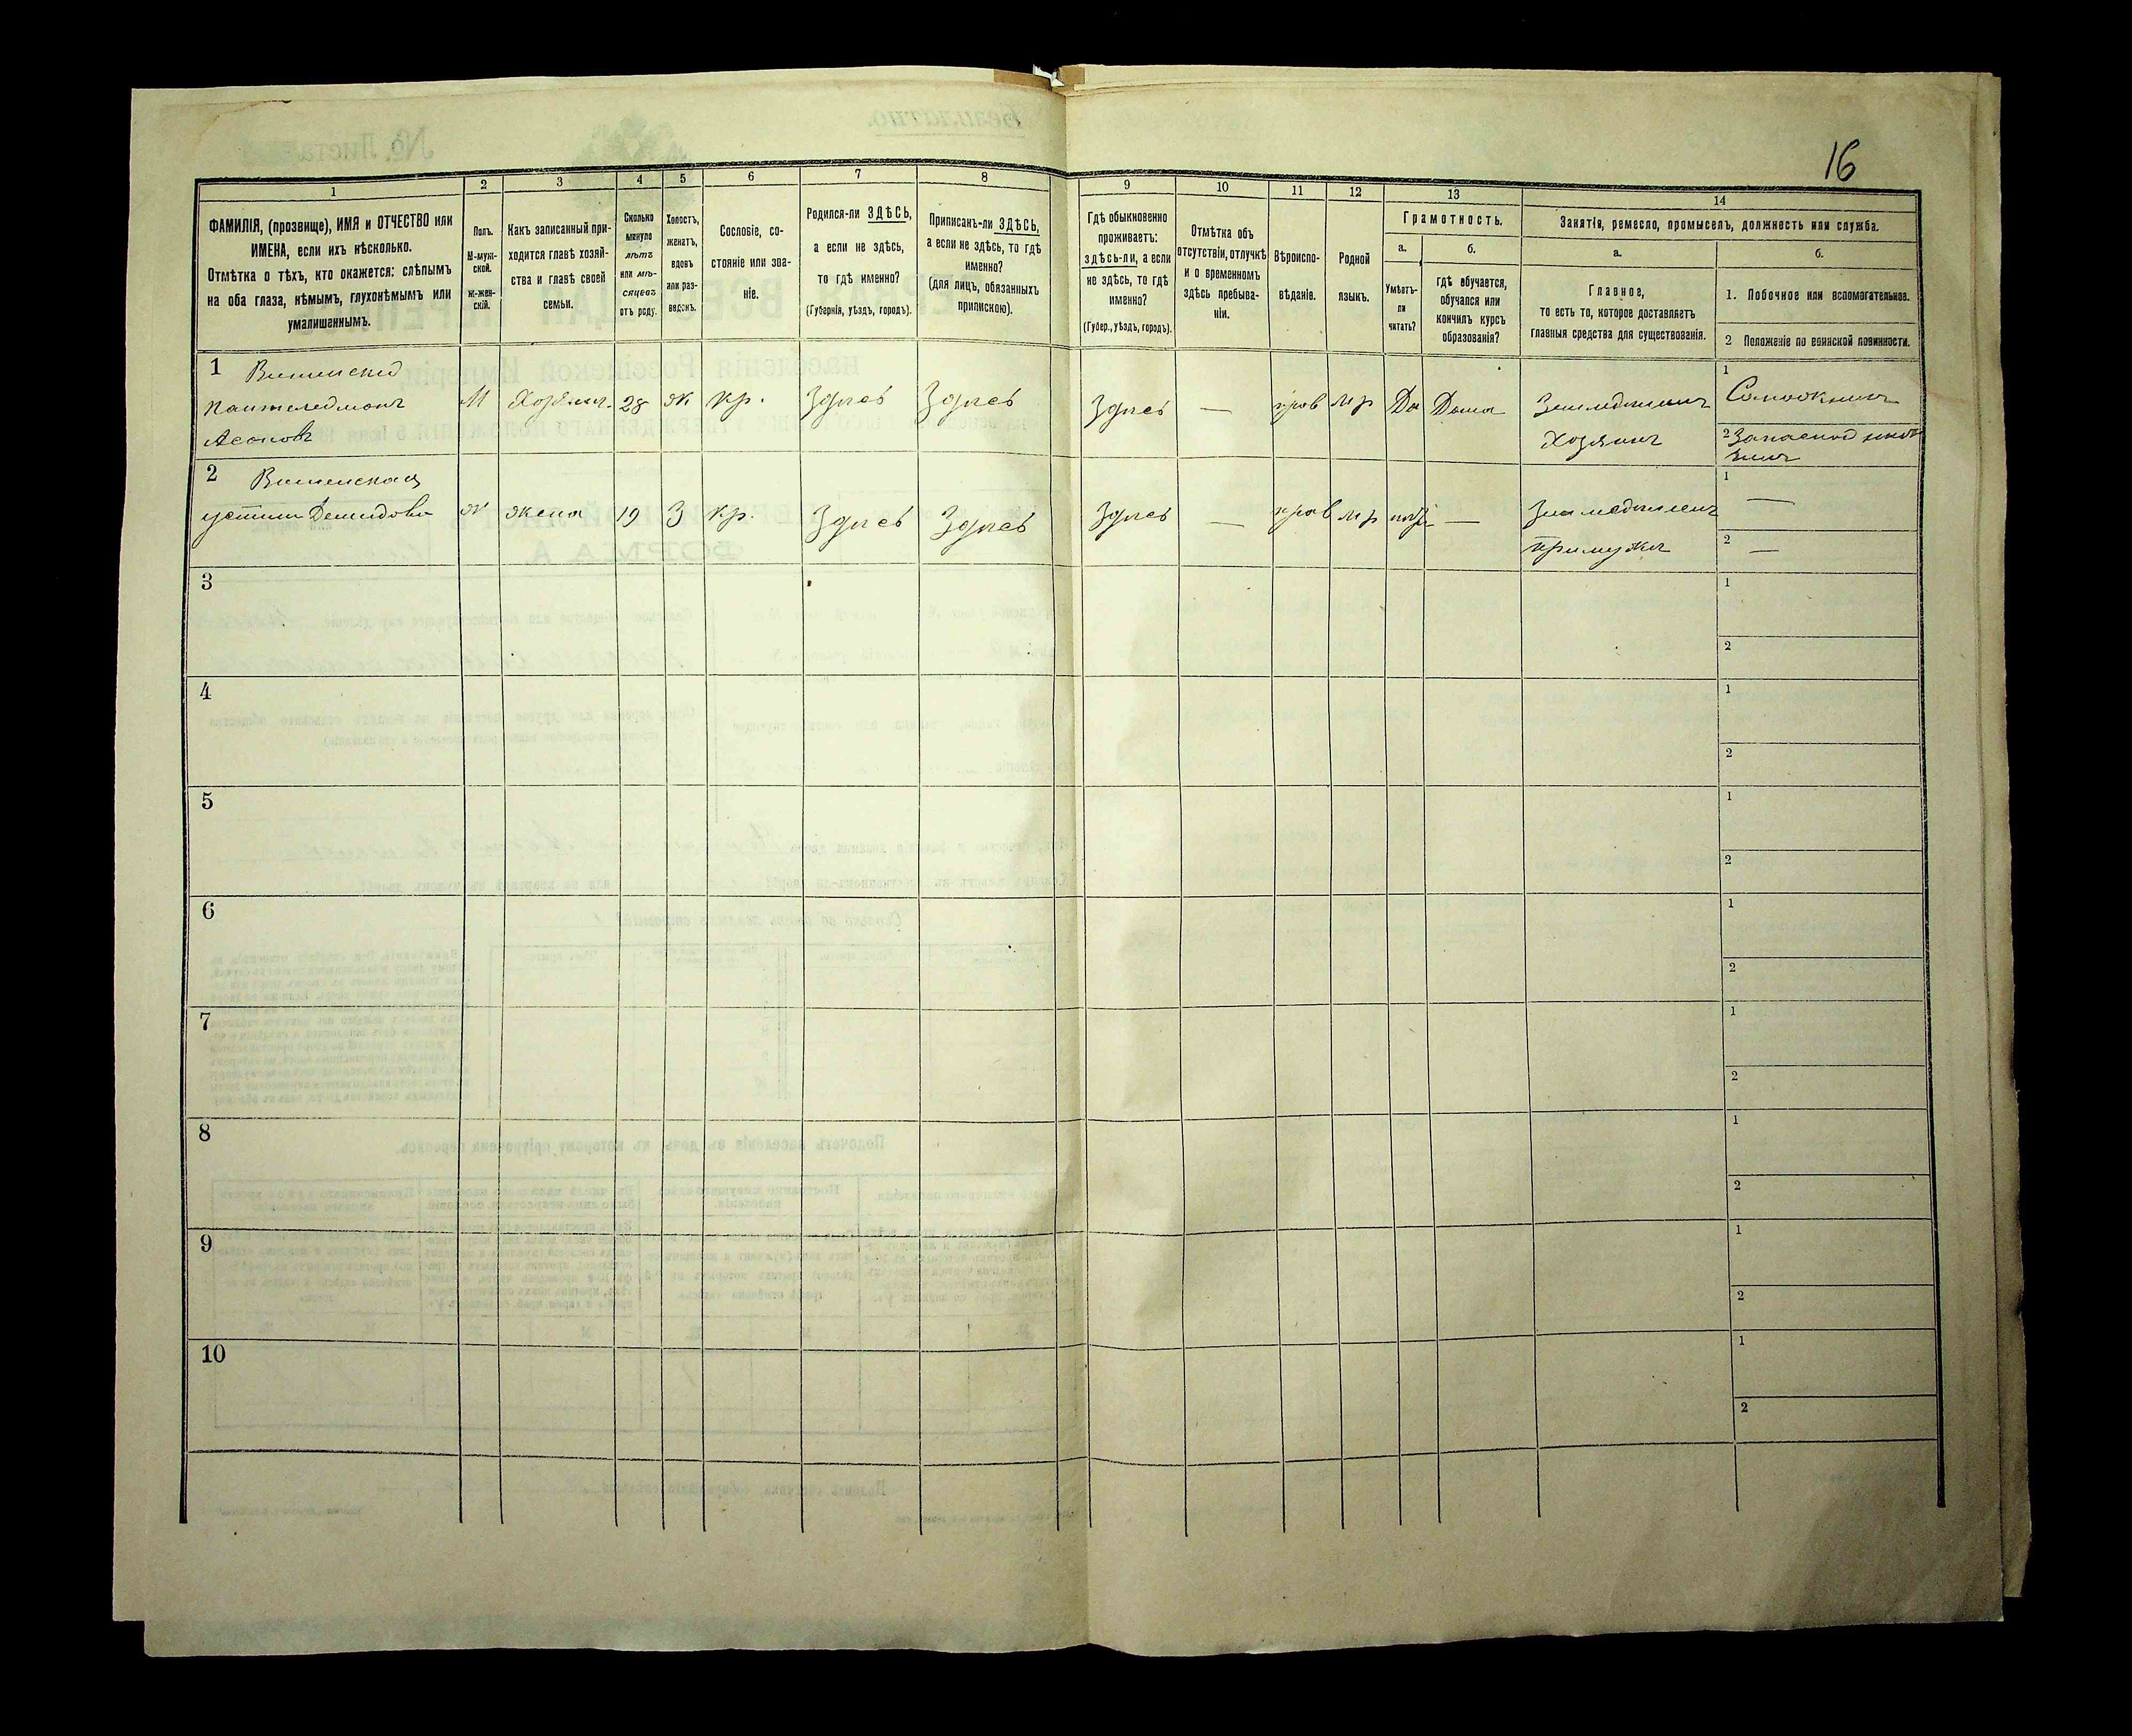 16
1
2
3
4
5
6
7
8
9
10
11
12
13
14
ФАМИЛІЯ, (прозвище), ИМЯ и ОТЧЕСТВО или
ИМЕНА, если ихъ нѣсколько.
Отмѣтка о тѣхъ, кто окажется: слѣпымъ
на оба глаза, нѣмымъ, глухонѣмымъ или
умалишеннымъ.
Полъ.
М-муж-
ской.
Ж-жен-
скій.
Какъ записанный при-
ходится главѣ хозяй-
ства и главѣ своей
семьи.
Сколько
минуло
лѣтъ
или мѣ-
сяцевъ
отъ роду.
Холостъ,
женатъ,
вдовъ
или раз-
веденъ.
Сословіе, со-
стояніе или зва-
ніе.
Родился-ли ЗДѢСЬ,
а если не здѣсь,
то гдѣ именно?
(Губернія, уѣздъ, городъ).
Приписанъ-ли ЗДѢСЬ,
а если не здѣсь, то гдѣ
именно?
(для лицъ, обязанныхъ
припискою).
Гдѣ обыкновенно
проживаетъ:
здѣсь-ли, а если
не здѣсь, то гдѣ
именно?
(Губер., уѣздъ, городъ).
Отмѣтка объ
отсутствіи, отлучкѣ
и о временномъ
здѣсь пребыва-
ніи.
Вѣроиспо-
вѣданіе.
Родной
языкъ.
Грамотность.
а.
Умѣетъ-
ли
читать?
б.
гдѣ обучается,
обучался или
кончилъ курсъ
образованія?
Занятія, ремесло, промыселъ, должность или служба.
а.
Главное,
то есть то, которое доставляетъ
главныя средства для существованія.
б.
1. Побочное или вспомогательное.
2 Положеніе по воинской повинности.
1
Пантелеймонъ
М Хозяинъ. 28 ж кр. Здѣсь Здѣсь Здѣсь — прав мр Да Дома
Хозяинъ
1
2
2
Устина Демидова
ж жена 19 З кр. Здѣсь Здѣсь Здѣсь — прав мр —
примужѣ
1 —
2 —
3
1
2
4
1
2
5
1
2
6
1
2
7
1
2
8
1
2
9
1
2
10
1
2